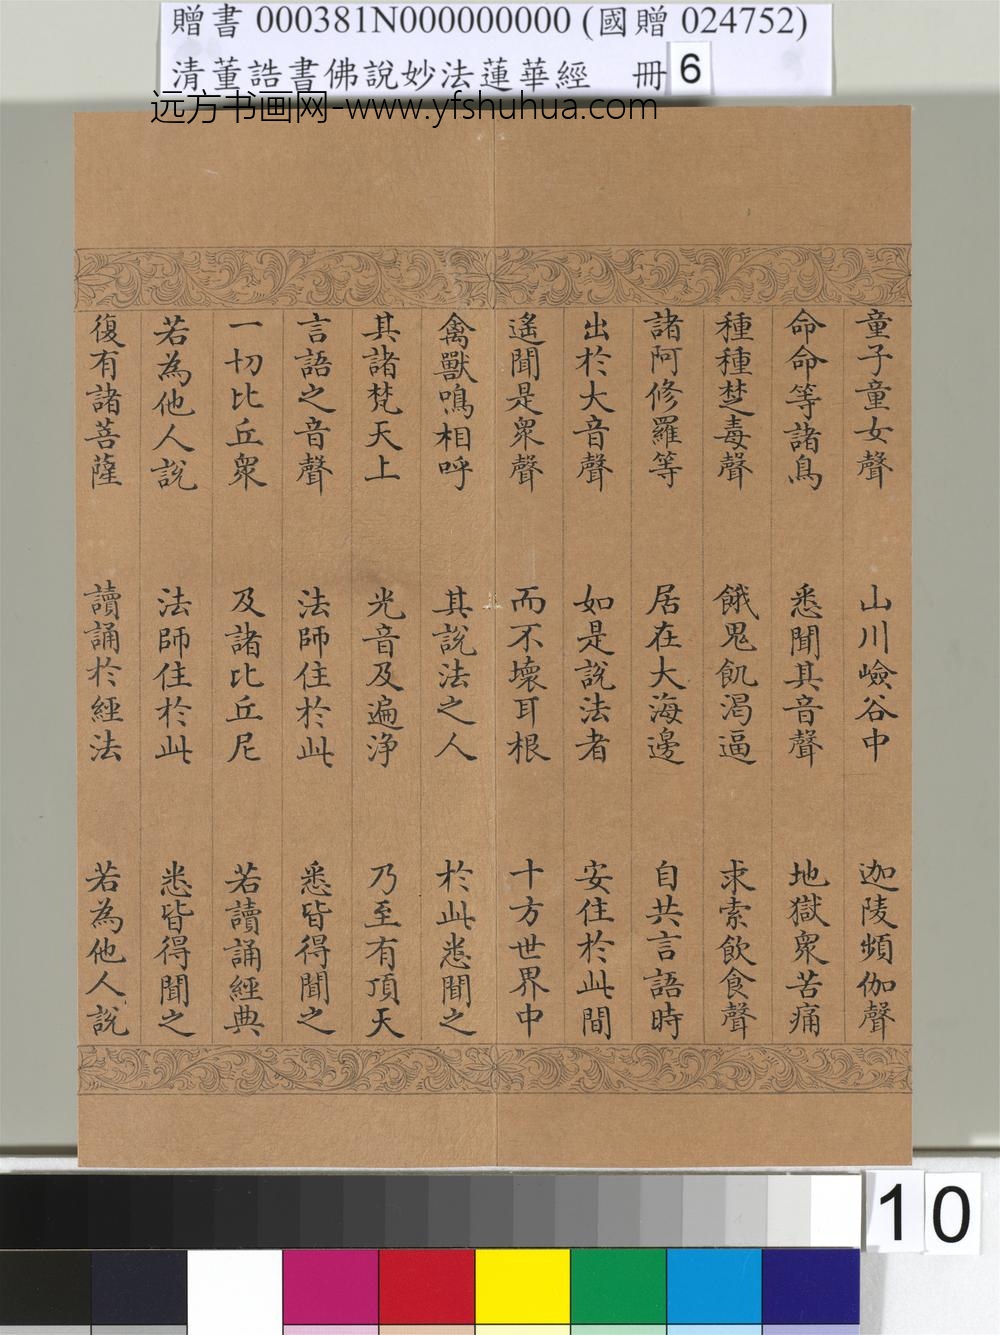 贈書 000381N000000000 (國贈 024752)
清董誥書佛說妙法蓮華經 冊 6
远方书画网-www.yfshuhua.com
童子童女聲 山川嶮谷中 迦陵頻伽聲
命命等諸鳥 悉聞其音聲 地獄眾苦痛
種種楚毒聲 餓鬼飢渴逼 求索飲食聲
諸阿修羅等 居在大海邊 自共言語時
出於大音聲 如是說法者 安住於此間
遙聞是眾聲 而不壞耳根 十方世界中
禽獸鳴相呼 其說法之人 於此悉聞之
其諸梵天上 光音及遍淨 乃至有頂天
言語之音聲 法師住於此 悉皆得聞之
一切比丘眾 及諸比丘尼 若讀誦經典
若為他人說 法師住於此 悉皆得聞之
復有諸菩薩 讀誦於經法 若為他人說
10